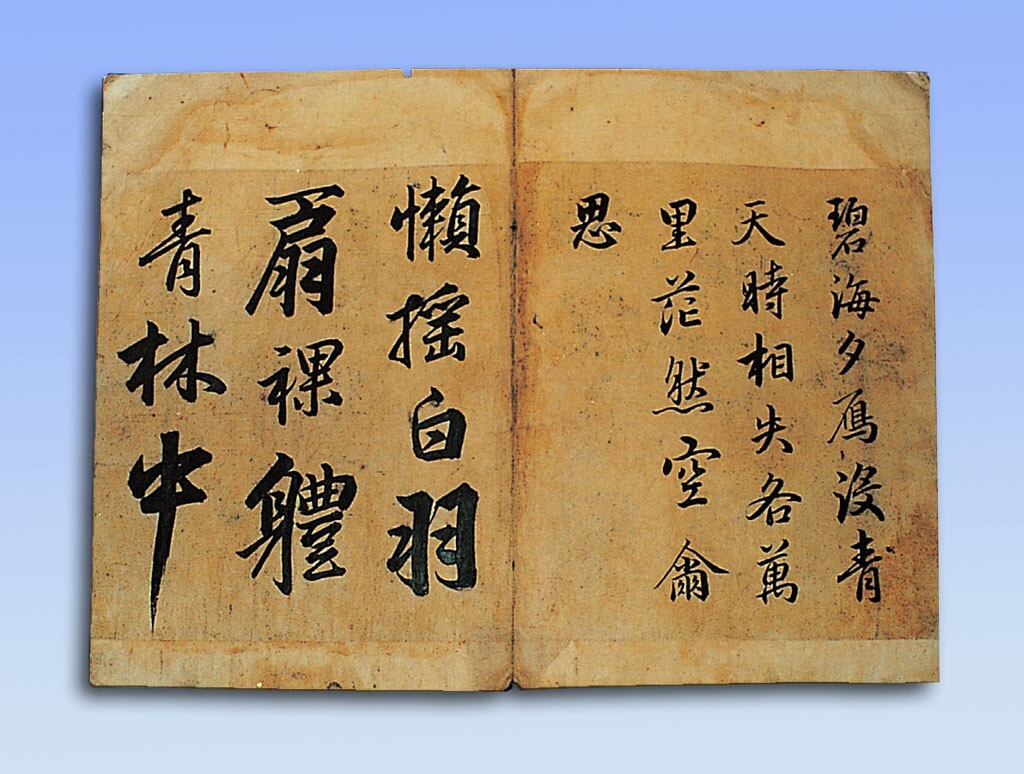 碧海夕鴈沒青
天時相失各萬
里茫然空爾
思
懶搖白羽
扇裸體
青林中